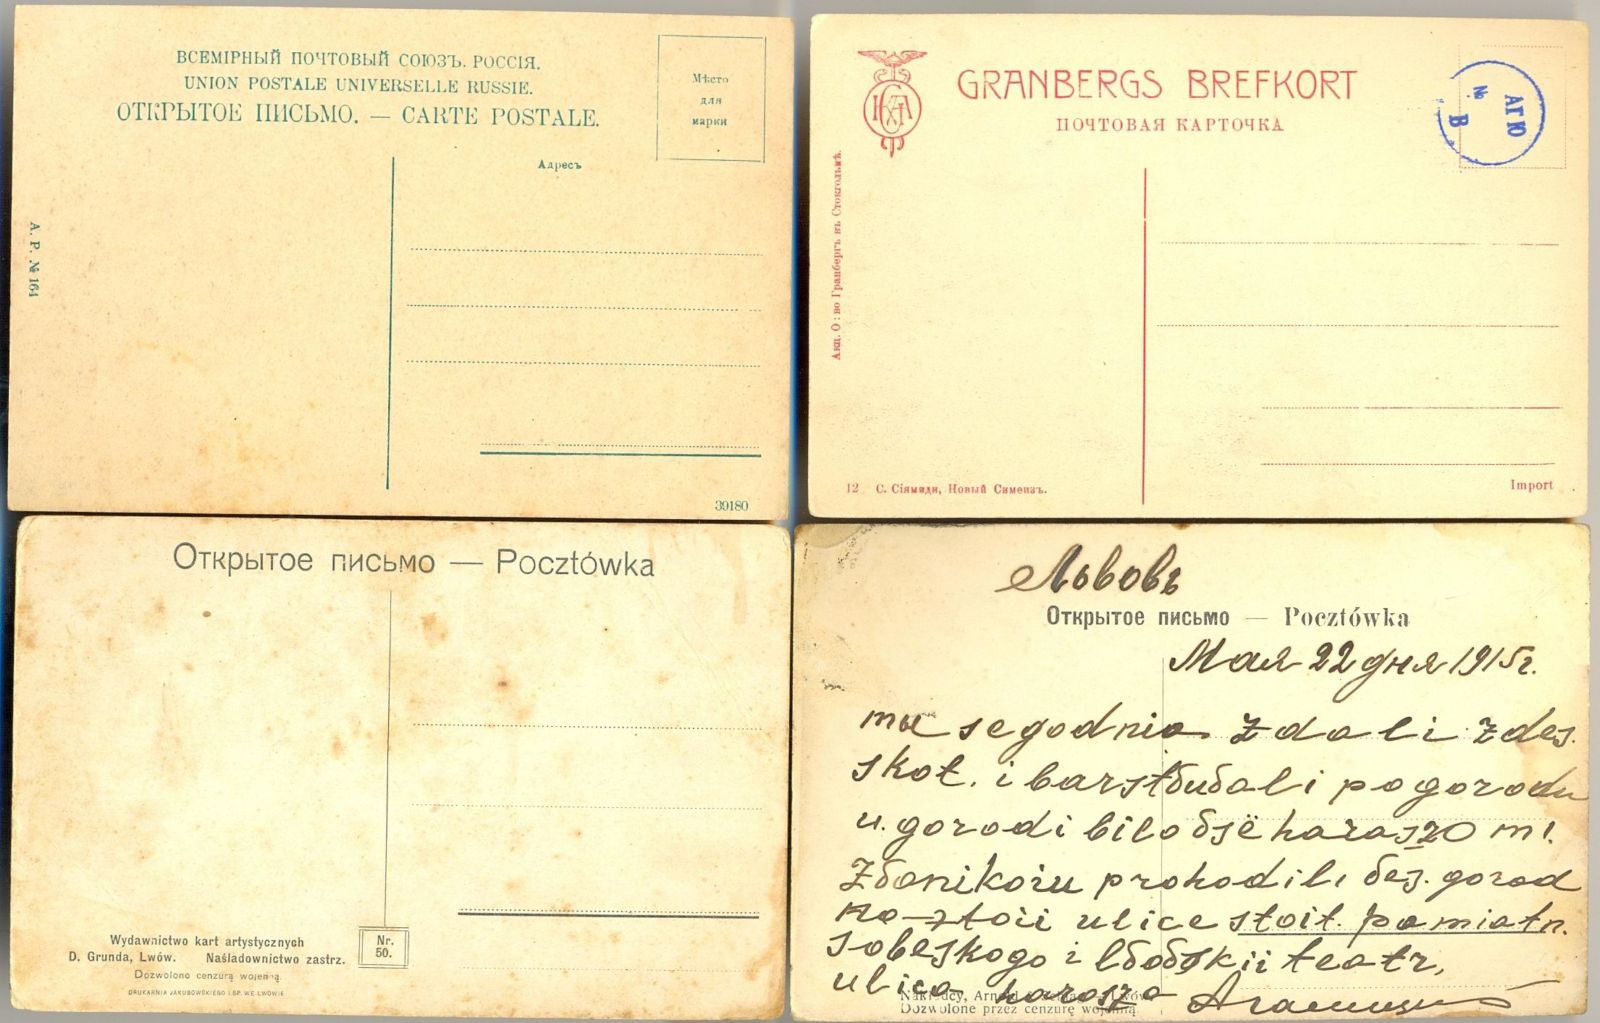 ВСЕМІРНЫЙ ПОЧТОВЫЙ СОЮЗЪ. РОССІЯ.
UNION POSTALE UNIVERSELLE RUSSIE.
ОТКРЫТОЕ ПИСЬМО. — CARTE POSTALE.
Мѣсто
для
марки
Адресъ
А. Р. № 164
39180
GRANBERGS BREFKORT
ПОЧТОВАЯ КАРТОЧКА
АГЮ
№ В
Акц. О: во Гранбергъ въ Стокгольмѣ.
12 С. Сіямиди, Новый Симеизъ.
Import
Открытое письмо — Pocztówka
Wydawnictwo kart artystycznych
D. Grunda, Lwów. Naśladownictwo zastrz.
Dozwolono cenzurą wojenną.
DRUKARNIA JAKUBOWSKIEGO I SP. WE LWOWIE
Nr.
50.
Львовъ
Открытое письмо — Pocztówka
Мая 22 дня 1915 г.
mы segodnia zdali zdes.
skot. i pogorodu
gorodi bilo 20 m
prohodili gorod
ulice stoit. pamiatn.
sobeskogo i teatr,
ulica
Dozwolone przez cenzurę wojenną